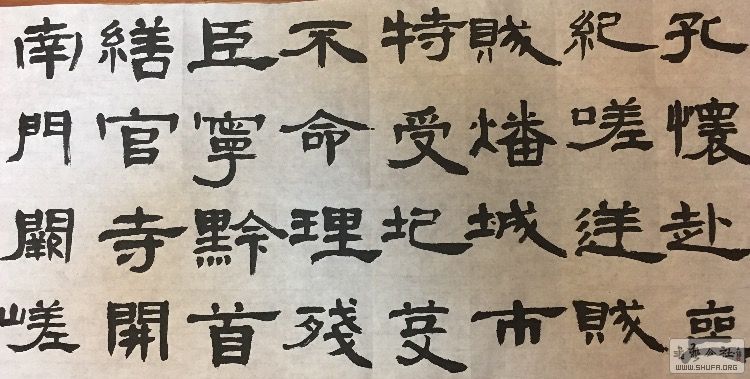 孔懷赴喪
紀嗟逆賊
賊燔城市
特受圯芟
不命理殘
臣寧黔首
繕官寺開
南門闕嵯
WWW.SHUFA.ORG